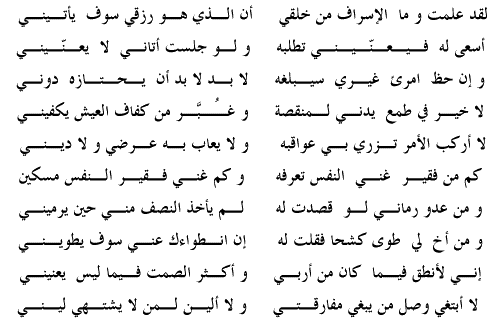 لقد علمت و ما الإسراف من خلقي أن الذي هو رزقي سوف يأتيني
أسعى له فيعنّيني تطلبه و لو جلست أتاني لا يعنّيني
و إن حظ امرئ غيري سيبلغه لا بد لا بد أن يحتازه دوني
لا خير في طمع يدني لمنقصة و غُبَّر من كفاف العيش يكفيني
لا أركب الأمر تزري بي عواقبه و لا يعاب به عرضي و لا ديني
كم من فقير غني النفس تعرفه و كم غني فقير النفس مسكين
و من عدو رماني لو قصدت له لم يأخذ النصف مني حين يرميني
و من أخ لي طوى كشحا فقلت له إن انطواءك عني سوف يطويني
إني لأنطق فيما كان من أربي و أكثر الصمت فيما ليس يعنيني
لا أبتغي وصل من يبغي مفارقتي و لا ألين لمن لا يشتهي ليني